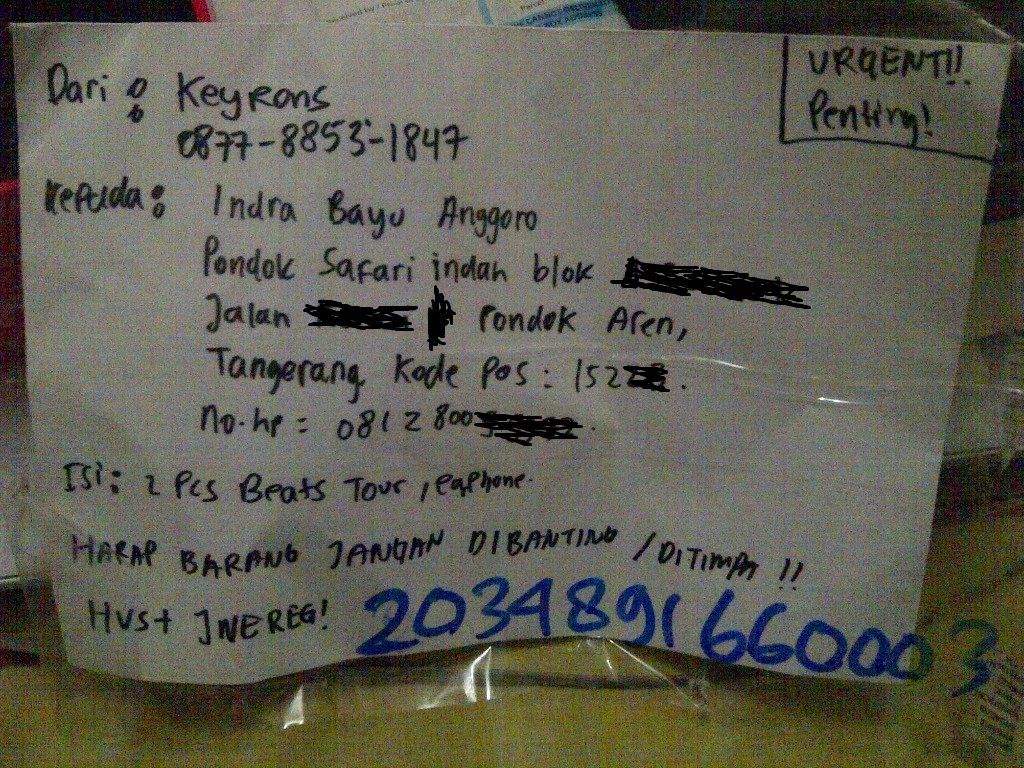 URGENT!!
Penting!
Dari : Keyrons
0877-8853-1847
Kepada : Indra Bayu Anggoro
Pondok Safari indah blok
Jalan Pondok Aren,
Tangerang, Kode pos : 152
no.hp = 0812 800
Isi : 2 Pcs Beats Tour, earphone.
HARAP BARANG JANGAN DIBANTING / DITIMPA !!
JNE REG!
2034891660003